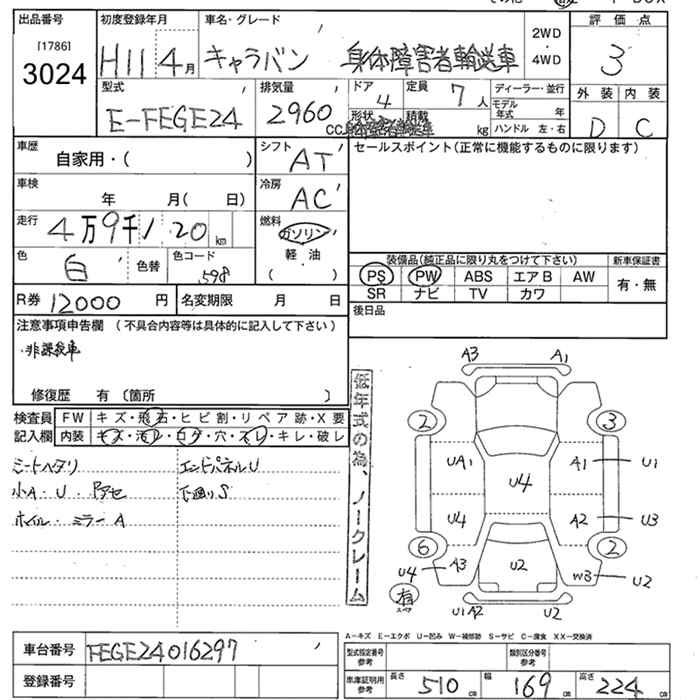 出品番号 初度登録年月 車名・グレード 2WD・4WD 評価点
[1786]
3024 H11 4月 キャラバン 身体障害者輸送車 3
型式 排気量 ドア 定員 ディーラー・並行 外装 内装
E-FEGE24 2960 4 7人 モデル年式 年 D C
形状 積載 kg ハンドル 左・右
CC身体障害者輸送車
車歴 自家用・( ) シフト AT セールスポイント(正常に機能するものに限ります)
車検 年 月( 日) 冷房 AC
走行 4万9千120km 燃料 ガソリン
軽油
( )
色 白 色替 色コード 598
装備品(純正品に限り丸をつけて下さい) 新車保証書
PS PW ABS エアB AW 有・無
SR ナビ TV カワ
R券 12000円 名変期限 月 日 後日品
注意事項申告欄 (不具合内容等は具体的に記入して下さい)
・非課税車
修復歴 有 〔箇所 〕
検査員 FW キズ・飛石・ヒビ割・リペア跡・X要
記入欄 内装 キズ・汚レ・コゲ・穴・スレ・キレ・破レ
シートヘタリ エンドパネルU
小A・U・アセ 下廻りS
ホイル・ミラーA
低年式の為、ノークレーム
A3 A1
2 3
UA1 A1 U1
U4
U4 A2 U3
6 2
U4 A3 U2 W3 U2
有
スペア
U1 A2 U2
A-キズ E-エクボ U-凹み W-補修跡 S-サビ C-腐食 XX-交換済
車台番号 FEGE24016297 型式指定番号 参考 類別区分番号 参考
登録番号 車庫証明用 参考 長さ 510cm 幅 169cm 高さ 224cm